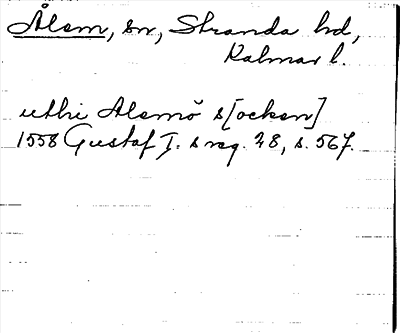 Ålem, sn, Stranda hd,
Kalmar l.
uthi Alemö s[ocken]
1558 Gustaf I. s reg. 28, s. 567.